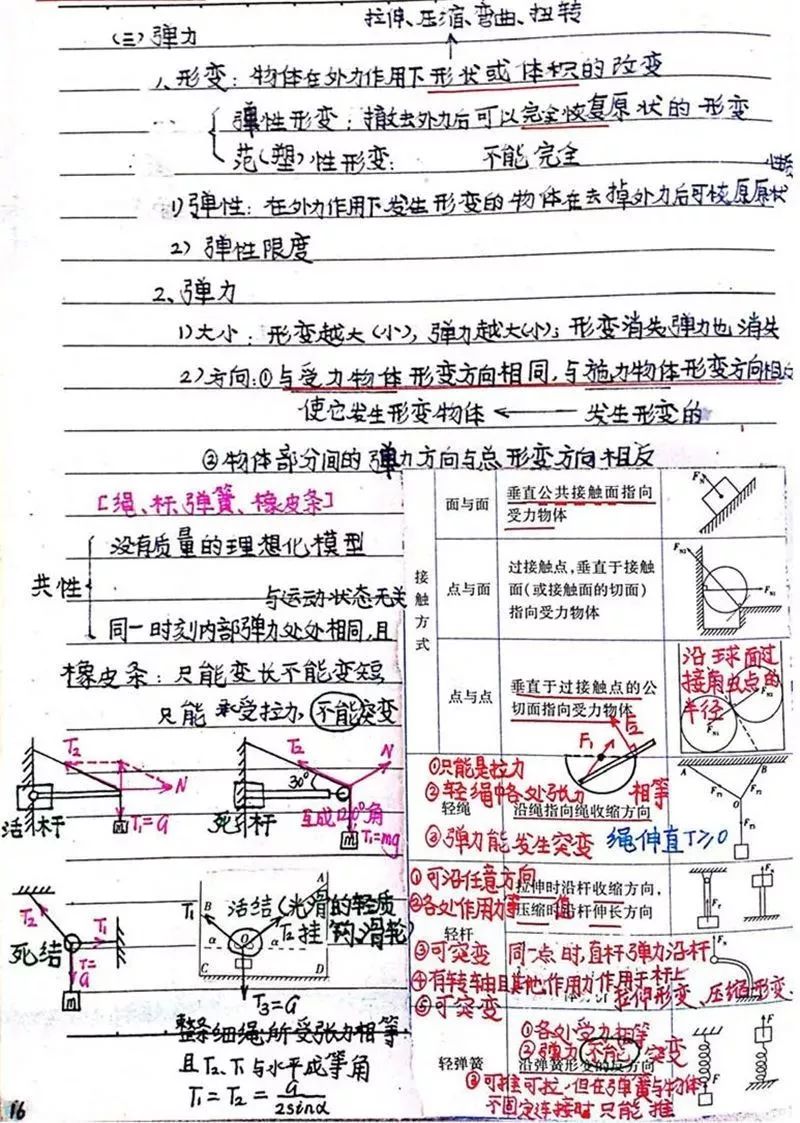 拉伸、压缩、弯曲、扭转
(三) 弹力
1、形变: 物体在外力作用下形状或体积的改变
弹性形变: 撤去外力后可以完全恢复原状的形变
范(塑)性形变: 不能完全
1) 弹性: 在外力作用下发生形变的物体在去掉外力后可恢原原状
2) 弹性限度
2、弹力
1) 大小: 形变越大(小), 弹力越大(小); 形变消失弹力也消失
2) 方向: ① 与受力物体形变方向相同, 与施力物体形变方向相反
使它发生形变物体 ← 发生形变的
② 物体部分间的弹力方向与总形变方向相反
[绳、杆、弹簧、橡皮条]
共性
没有质量的理想化模型
与运动状态无关
同一时刻内部弹力处处相同, 且
橡皮条: 只能变长不能变短
只能承受拉力, 不能突变
T₂
N
活杆
m
T₁=G
T₂
N
30°
死杆
互成120°角
m
T₁=mg
T₂
T₁
死结
T=G
m
A
B
T₁
活结(光滑的轻质
T₂ 挂钩、滑轮)
O
α
α
C
D
T₃=G
整条细绳所受张力相等
且T₂、T₁与水平成等角
T₁=T₂=G/2sinα
16
接触方式
面与面
垂直公共接触面指向
受力物体
点与面
过接触点,垂直于接触
面(或接触面的切面)
指向受力物体
点与点
垂直于过接触点的公
切面指向受力物体
沿球面过
接触点的
半径
F₁
F₂
①只能是拉力
②轻绳中各处张力 相等
轻绳
沿绳指向绳收缩方向
③弹力能发生突变 绳伸直T≥0
A
B
O
①可沿任意方向
拉伸时沿杆收缩方向,
②各处作用力等值
压缩时沿杆伸长方向
轻杆
③可突变 同一点时,直杆弹力沿杆
④有转轴且其他作用力作用于杆上
拉伸形变、压缩形变.
⑤可突变
轻弹簧
①各处受力相等
②弹力不能突变
沿弹簧形变的反方向
③可推可拉,但在弹簧与物体
不固定连接时只能推